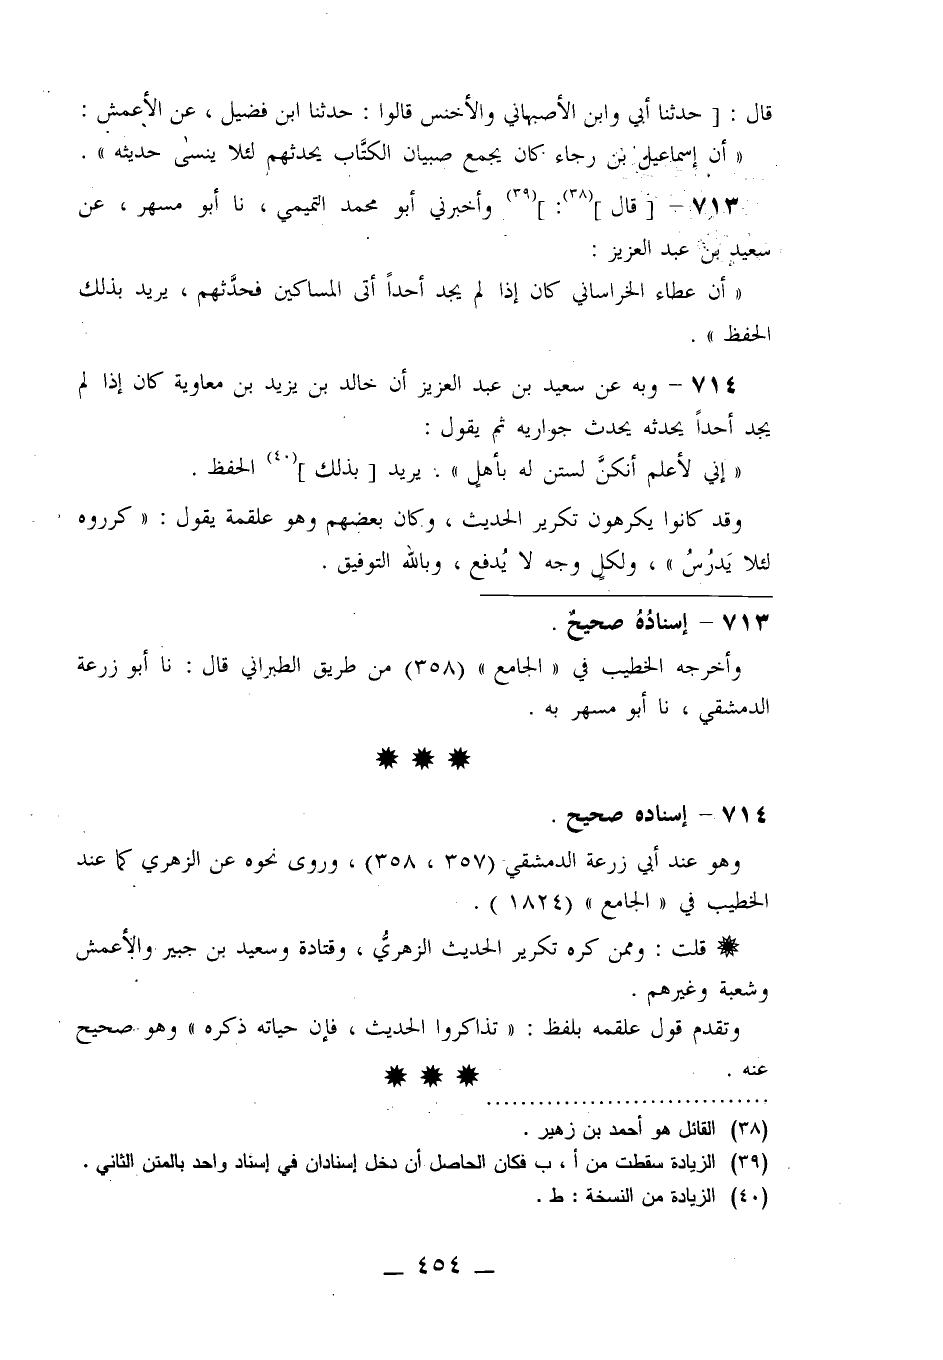 قال : [ حدثنا أبي وابن الأصبهاني والأخنس قالوا : حدثنا ابن فضيل ، عن الأعمش :
« أن إسماعيل بن رجاء كان يجمع صبيان الكتَّاب يحدثهم لئلا ينسى حديثه » .
٧١٣ – [ قال ](٣٨): ](٣٩) وأخبرني أبو محمد التميمي ، نا أبو مسهر ، عن
سعيد بن عبد العزيز :
« أن عطاء الخراساني كان إذا لم يجد أحداً أتى المساكين فحدَّثهم ، يريد بذلك
الحفظ » .
٧١٤ – وبه عن سعيد بن عبد العزيز أن خالد بن يزيد بن معاوية كان إذا لم
يجد أحداً يحدثه يحدث جواريه ثم يقول :
« إني لأعلم أنكنَّ لستن له بأهلٍ » . يريد [ بذلك ](٤٠) الحفظ .
وقد كانوا يكرهون تكرير الحديث ، وكان بعضهم وهو علقمة يقول : « كرروه
لئلا يَدرُسُ » ، ولكلٍ وجه لا يُدفع ، وبالله التوفيق .
٧١٣ – إسنادُهُ صحيحٌ .
وأخرجه الخطيب في « الجامع » (٣٥٨) من طريق الطبراني قال : نا أبو زرعة
الدمشقي ، نا أبو مسهر به .
٧١٤ – إسناده صحيح .
وهو عند أبي زرعة الدمشقي (٣٥٧ ، ٣٥٨) ، وروى نحوه عن الزهري كما عند
الخطيب في « الجامع » (١٨٢٤ ) .
قلت : وممن كره تكرير الحديث الزهريُّ ، وقتادة وسعيد بن جبير والأعمش
وشعبة وغيرهم .
وتقدم قول علقمه بلفظ : « تذاكروا الحديث ، فإن حياته ذكره » وهو صحيح
عنه .
(٣٨) القائل هو أحمد بن زهير .
(٣٩) الزيادة سقطت من أ ، ب فكان الحاصل أن دخل إسنادان في إسناد واحد بالمتن الثاني .
(٤٠) الزيادة من النسخة : ط .
— ٤٥٤ —